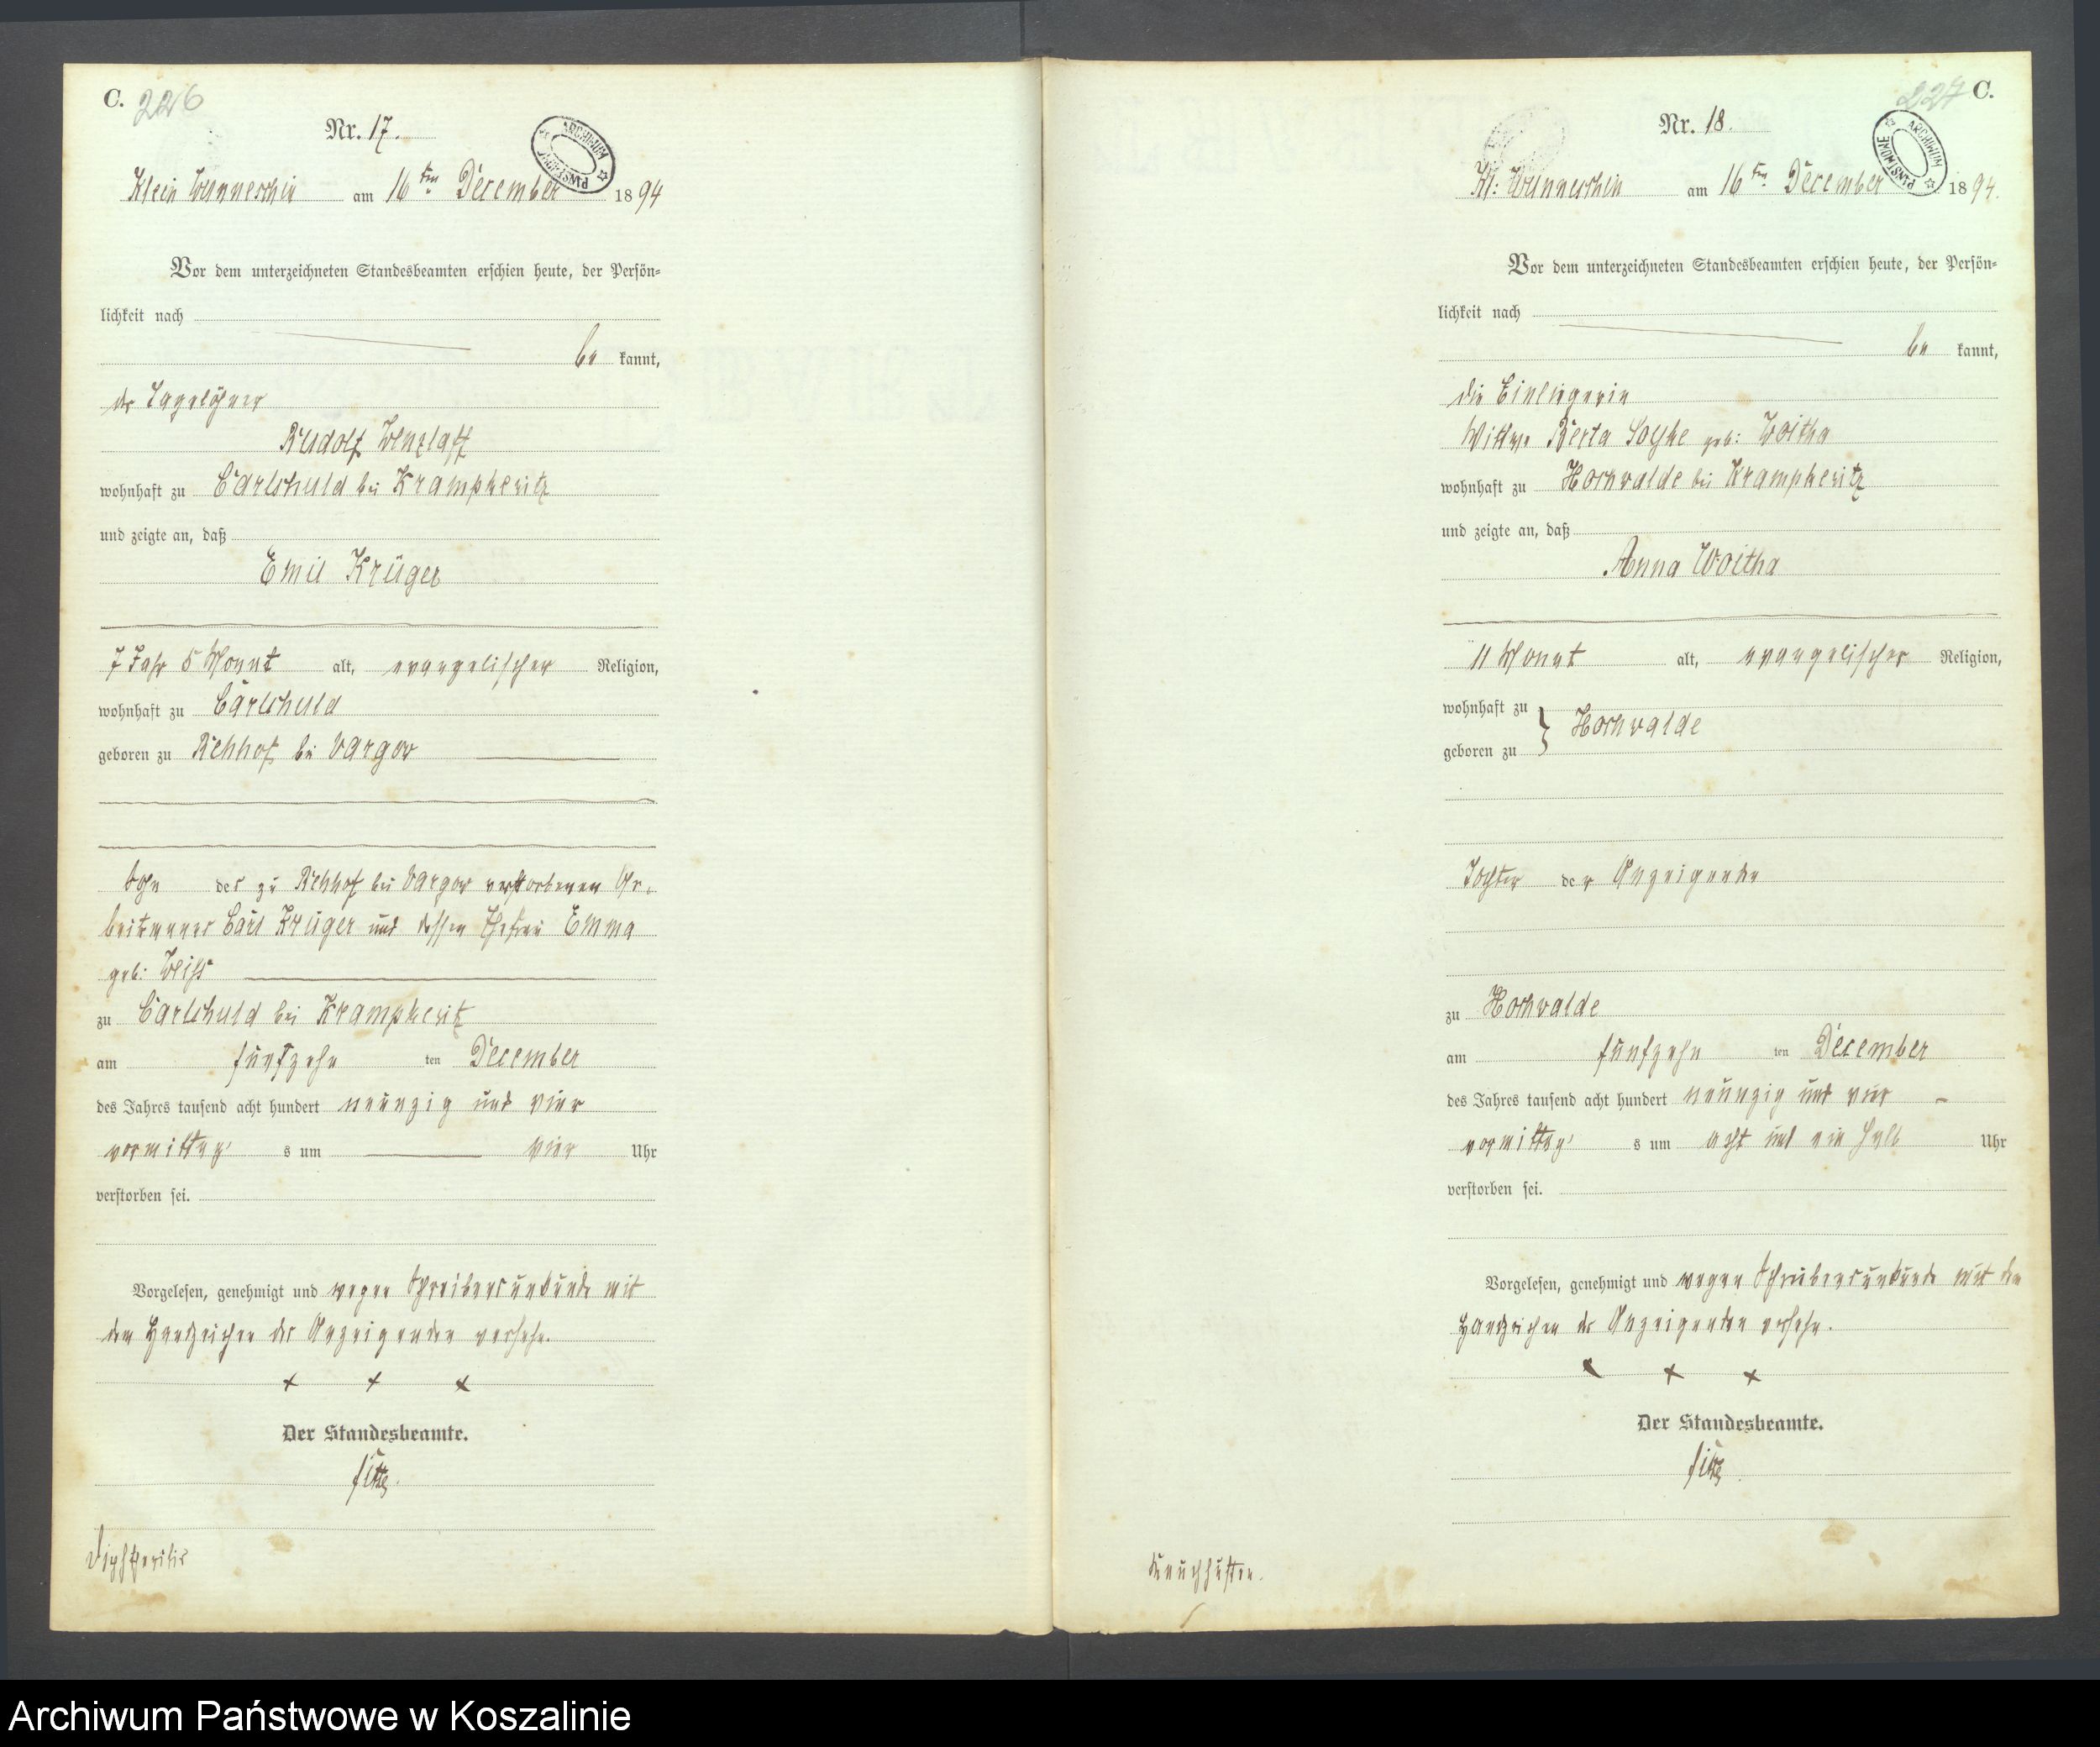 C.
226
Nr. 17.
ARCHIWUM PAŃSTWOWE
Klein Wunneschin am 16ten December 1894
Vor dem unterzeichneten Standesbeamten erschien heute, der Persön-
lichkeit nach
be kannt,
der Tagelöhner
Rudolf Wenzlaff
wohnhaft zu Carlshuld bei Krampkewitz
und zeigte an, daß
Emil Krüger
7 Jahr 5 Monat alt, evangelischer Religion,
wohnhaft zu Carlshuld
geboren zu Rehhof bei Vargow
Sohn des zu Rehhof bei Vargow verstorbenen Ar-
beitmannes Carl Krüger und dessen Ehefrau Emma
geb: Weiss
zu Carlshuld bei Krampkewitz
am fünfzehn ten December
des Jahres tausend acht hundert neunzig und vier
vormittag s um vier Uhr
verstorben sei.
Vorgelesen, genehmigt und wegen Schreibensunkunde mit
dem Handzeichen des Anzeigenden versehn.
+ + +
Der Standesbeamte.
Diphtheritis
227 C.
Nr. 18.
ARCHIWUM PAŃSTWOWE
Kl: Wunneschin am 16ten December 1894.
Vor dem unterzeichneten Standesbeamten erschien heute, der Persön-
lichkeit nach
be kannt,
die Einliegerin
Wittwe Berta geb: Woitha
wohnhaft zu Hochwalde bei Krampkewitz
und zeigte an, daß
Anna Woitha
11 Monat alt, evangelischer Religion,
wohnhaft zu } Hochwalde
geboren zu
Tochter der Anzeigende
zu Hochwalde
am fünfzehn ten December
des Jahres tausend acht hundert neunzig und vier
vormittag s um acht und ein halb Uhr
verstorben sei.
Vorgelesen, genehmigt und wegen Schreibensunkunde mit dem
Handzeichen der Anzeigenden versehn.
+ + +
Der Standesbeamte.
Keuchhusten.
Archiwum Państwowe w Koszalinie